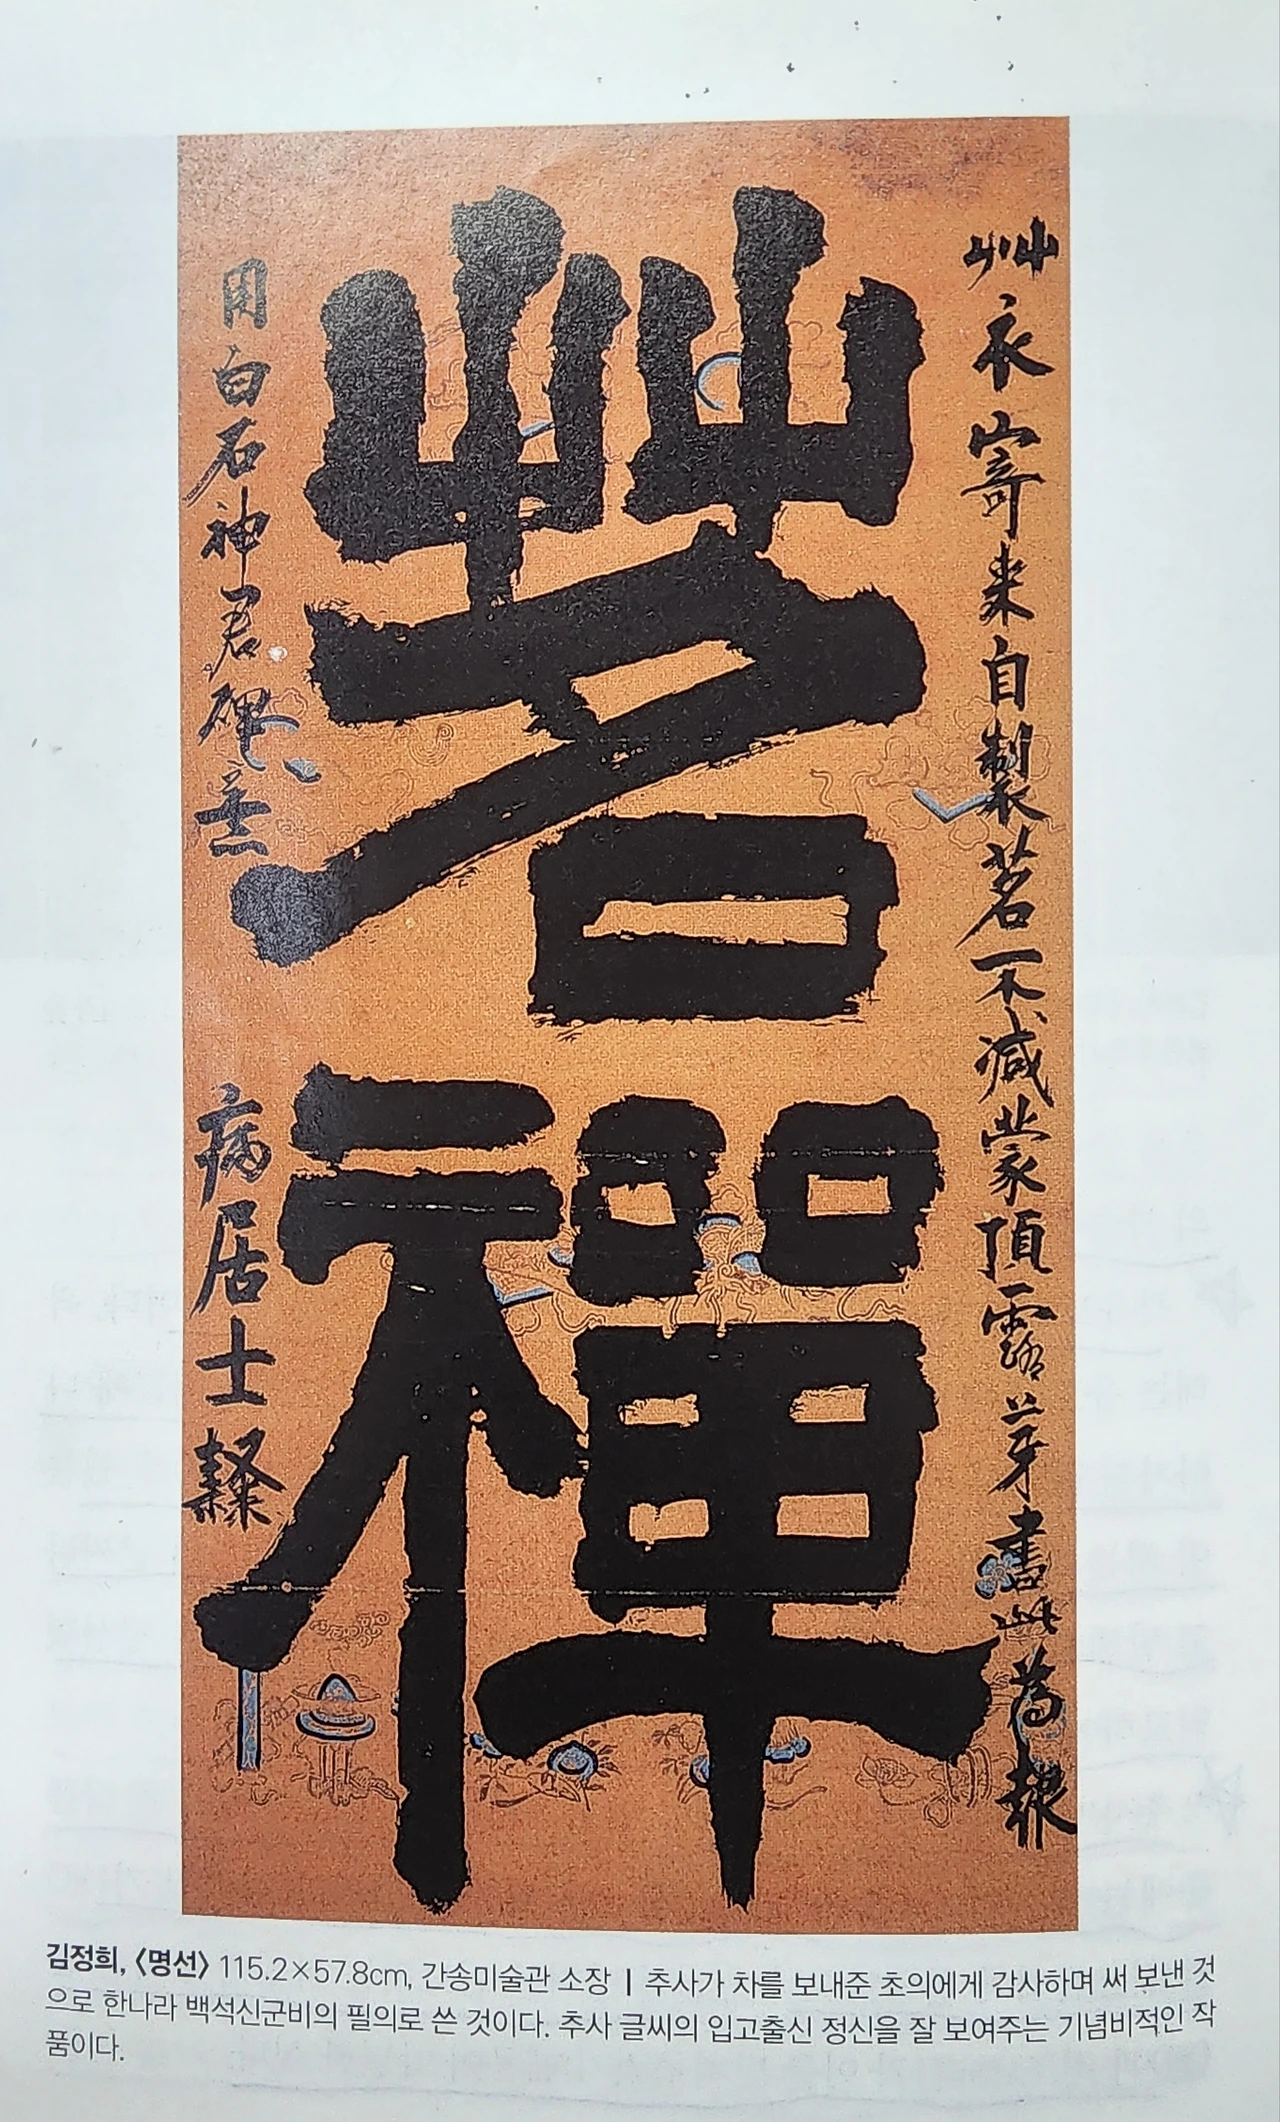 茗禪
艸衣寄來自製茗不減蒙頂露芽書此爲報
用白石神君碑意
病居士隷
김정희, 〈명선〉 115.2×57.8cm, 간송미술관 소장 | 추사가 차를 보내준 초의에게 감사하며 써 보낸 것
으로 한나라 백석신군비의 필의로 쓴 것이다. 추사 글씨의 입고출신 정신을 잘 보여주는 기념비적인 작
품이다.